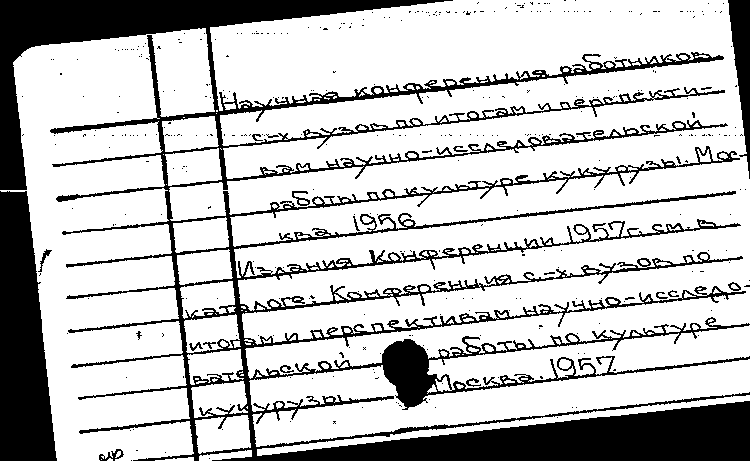 Научная конференция работников
с.-х. вузов по итогам и перспекти-
вам научно-исследовательской
работы по культуре кукурузы. Мос-
ква. 1956
Издания Конференции 1957г. см. в
каталоге: Конференция с.-х. вузов по
итогам и перспективам научно-исследо-
вательской работы по культуре
кукурузы. Москва. 1957